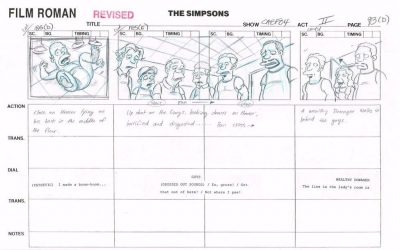 FILM ROMAN REVISED THE SIMPSONS
TITLE SHOW CABF04 ACT II PAGE 93(D)
SC. BG. TIMING SC. BG. TIMING SC. BG. TIMING SC. BG. TIMING
PAN
ACTION
Close on Homer lying on
his back in the middle of
the floor.
Up shot on the guys, looking down on Homer,
horrified and disgusted...
A wealthy Dowager walks in
behind the guys.
TRANS.
DIAL
(SHEEPISH) I made a boom-boom...
GUYS:
(GROSSED OUT SOUNDS) / Ew, gross! / Get
that out of here! / Not where I pee!
WEALTHY DOWAGER
The line in the lady's room is
TRANS.
NOTES